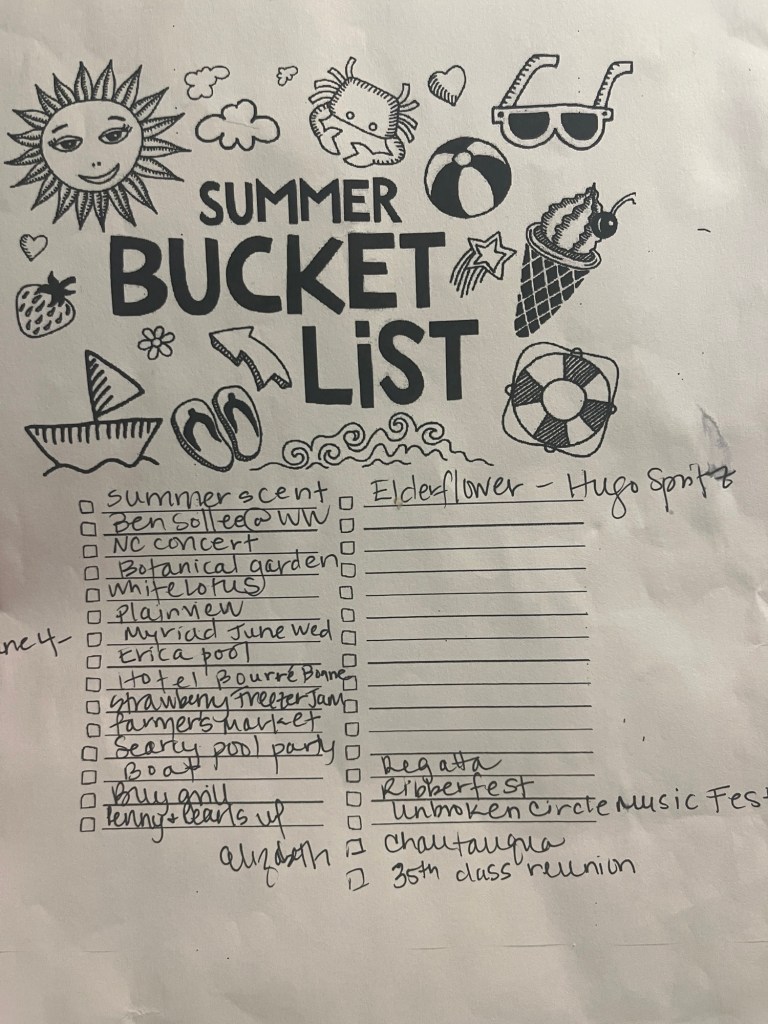 SUMMER
BUCKET
LiST
summer scent
Ben Sollee @ WW
NC concert
Botanical garden
White Lotus
Plainview
ne 4- Myriad June Wed
Erica pool
Hotel Bourré Bonne
Strawberry Freezer Jam
farmers market
Searcy pool party
Boat
Buy grill
Lenny + Pearls
Elizabeth
Elderflower - Hugo Spritz
Regatta
Ribberfest
Unbroken Circle Music Fest
Chautauqua
35th class reunion